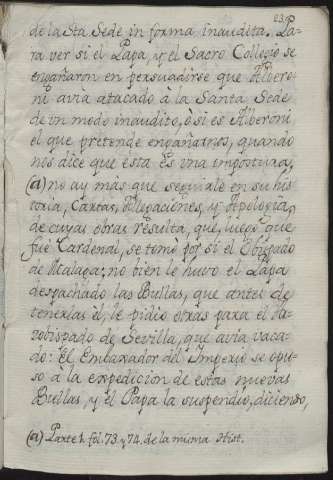 de la Sta Sede in forma inaudita. Pa-
ra ver si el Papa, y el Sacro Collegio se
engañaron en persuadirse que Albero-
ni avia atacado à la Santa Sede
de un modo inaudito, ò si es Alberoni
el que pretende engañarnos, quando
nos dice que esta es una impostura,
(a) no ay más que seguirle en su his
toria, Cartas, Alegaciones, y Apologia,
de cuyas obras resulta, que, luego que
fuè Cardenal, se tomò por sì el Obispado
de Malaga; no bien le huvo el Papa
despachado las Bullas, que antes de
tenerlas èl, le pidiò otras para el Ar
zobispado de Sevilla, que avia vaca-
do: El Embaxador del Imperio se opu-
so à la expedicion de estas nuevas
Bullas, y el Papa la suspendiò, diciendo,
(a) Parte 1. fol. 73. y 74. de la misma Hist.